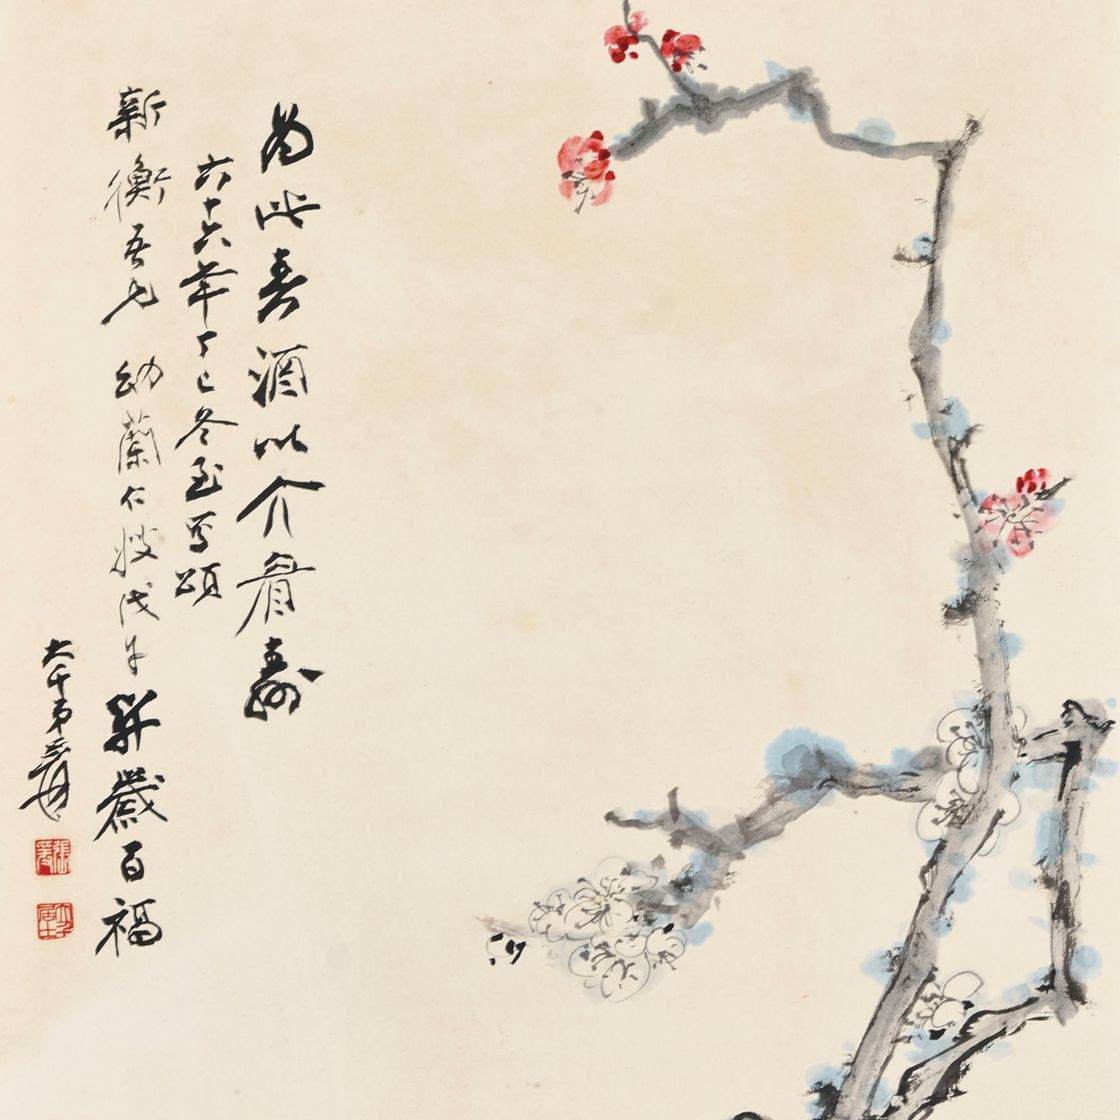 為此春酒以介眉壽
六十六年丁巳冬至寫頌
新衡吾兄 幼蘭仁嫂戊午獻歲百福
大千弟爰
張爰
大千居士